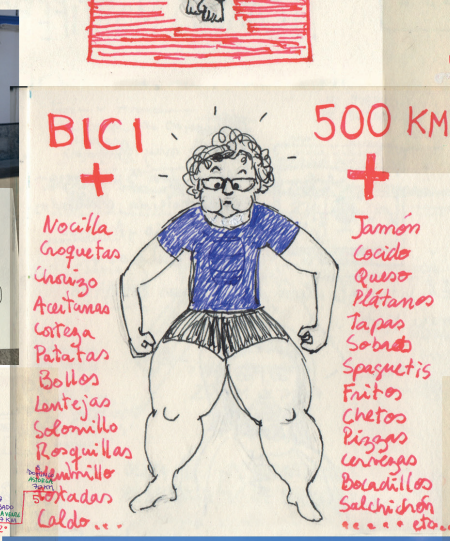 BICI
+
Nocilla
Croquetas
Chorizo
Aceitunas
Corteza
Patatas
Bollos
Lentejas
Solomillo
Rosquillas
Membrillo
Tostadas
Caldo...
500 KM
+
Jamón
Cocido
Queso
Plátanos
Tapas
Sobaos
Spaguetis
Fritos
Chetos
Pizzas
Cervezas
Bocadillos
Salchichón
..... etc..
ASTORGA